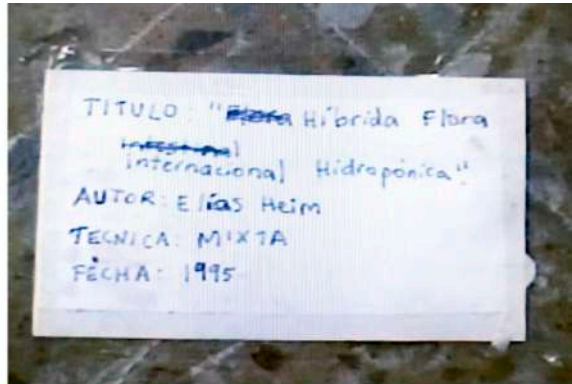 TITULO: "Flora Híbrida Flora
Intestinal
internacional Hidropónica".
AUTOR: Elías Heim
TECNICA: MIXTA
FECHA: 1995